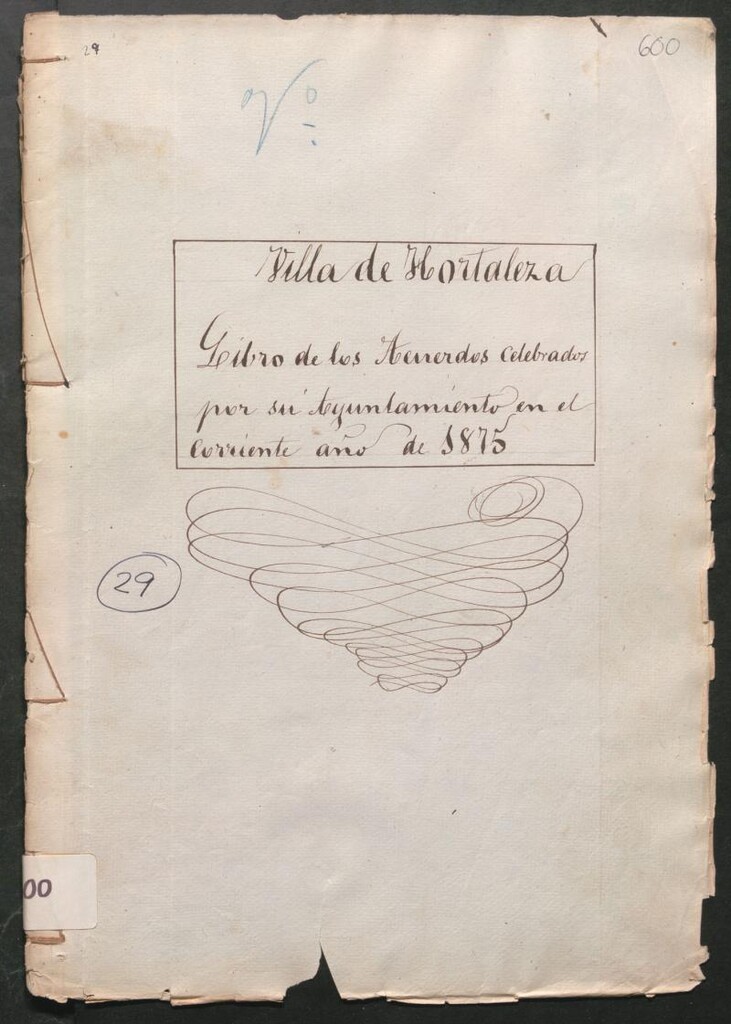 29
600
Vº
Villa de Hortaleza
Libro de los Acuerdos celebrados
por su Ayuntamiento en el
corriente año de 1875
29
00